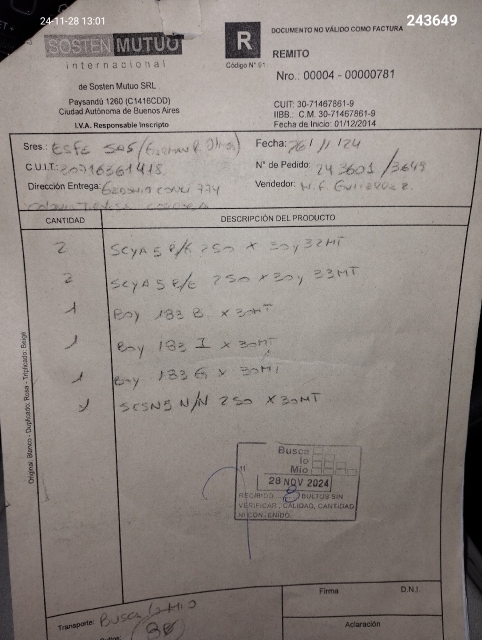 24-11-28 13:01
243649
SOSTEN MUTUO
internacional
de Sosten Mutuo SRL
Paysandú 1260 (C1416CDD)
Ciudad Autónoma de Buenos Aires
I.V.A. Responsable Inscripto
R
Código N° 91
DOCUMENTO NO VÁLIDO COMO FACTURA
REMITO
Nro.: 00004 - 00000781
CUIT: 30-71467861-9
IIBB.: C.M. 30-71467861-9
Fecha de Inicio: 01/12/2014
Sres.: ESFE SAS
Fecha: 26/11/24
C.U.I.T.: 20716361418
N° de Pedido: 243601/3649
Dirección Entrega: 774
Vendedor:
CANTIDAD
DESCRIPCIÓN DEL PRODUCTO
2 SCYA5 R/K 250 X 30y 32MT
2 SCYA5 R/E 250 X 30y 33MT
1 Boy 183 B X 30MT
1 Boy 183 I X 30MT
1 Boy 183 G X 30MT
1 SCSN5 N/N 250 X 30MT
Original: Blanco - Duplicado: Rosa - Triplicado: Beige
Busca
lo
Mio
28 NOV 2024
RECIBIDO 8 BULTOS SIN
VERIFICAR, CALIDAD, CANTIDAD
NI CONTENIDO
Firma
D.N.I.
Transporte: Busca lo Mio
Aclaración